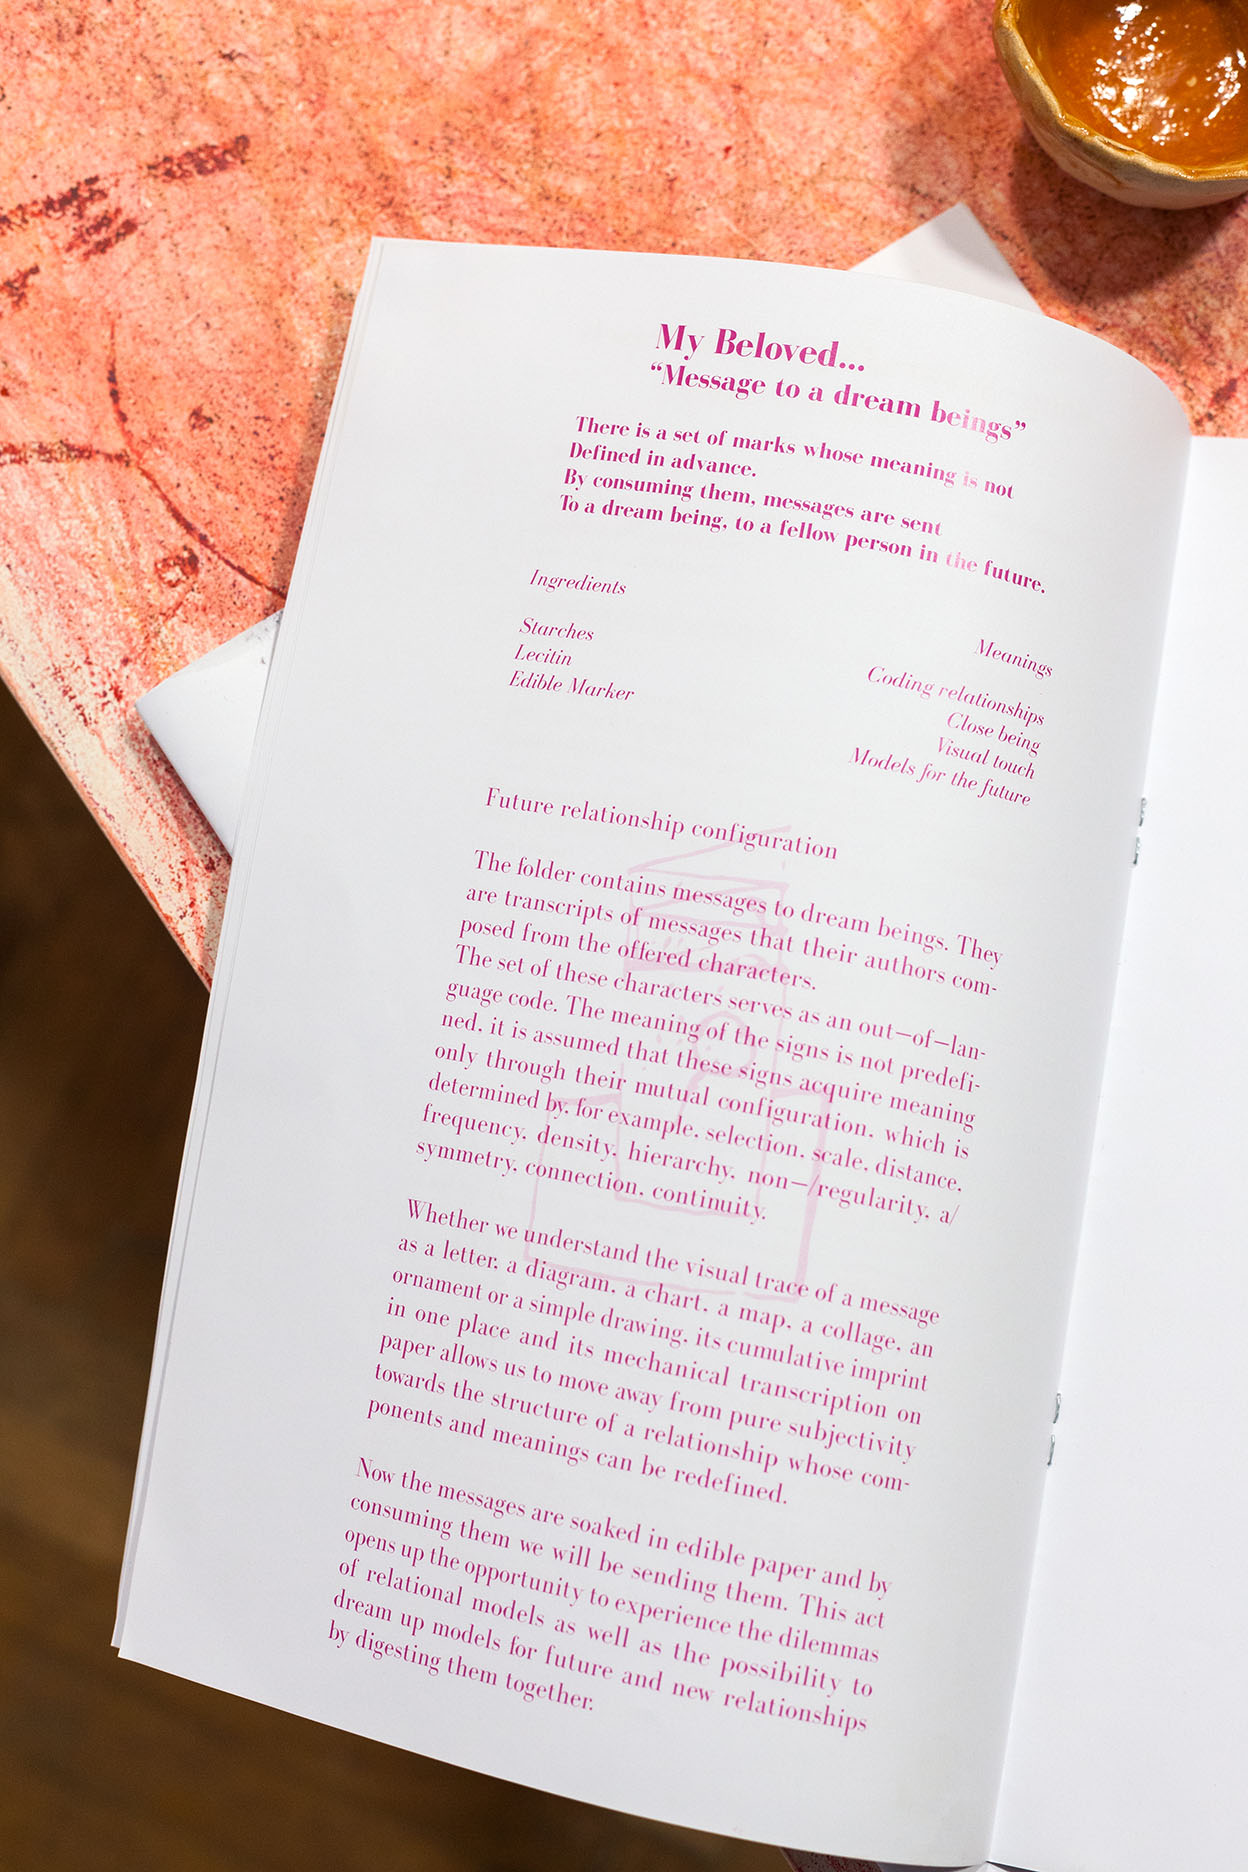 My Beloved...
“Message to a dream beings”
There is a set of marks whose meaning is not
Defined in advance.
By consuming them, messages are sent
To a dream being, to a fellow person in the future.
Ingredients
Starches
Lecitin
Edible Marker
Meanings
Coding relationships
Close being
Visual touch
Models for the future
Future relationship configuration
The folder contains messages to dream beings. They
are transcripts of messages that their authors com-
posed from the offered characters.
The set of these characters serves as an out—of—lan-
guage code. The meaning of the signs is not predefi-
ned, it is assumed that these signs acquire meaning
only through their mutual configuration, which is
determined by, for example, selection, scale, distance,
frequency, density, hierarchy, non—/regularity, a/
symmetry, connection, continuity.
Whether we understand the visual trace of a message
as a letter, a diagram, a chart, a map, a collage, an
ornament or a simple drawing, its cumulative imprint
in one place and its mechanical transcription on
paper allows us to move away from pure subjectivity
towards the structure of a relationship whose com-
ponents and meanings can be redefined.
Now the messages are soaked in edible paper and by
consuming them we will be sending them. This act
opens up the opportunity to experience the dilemmas
of relational models as well as the possibility to
dream up models for future and new relationships
by digesting them together.